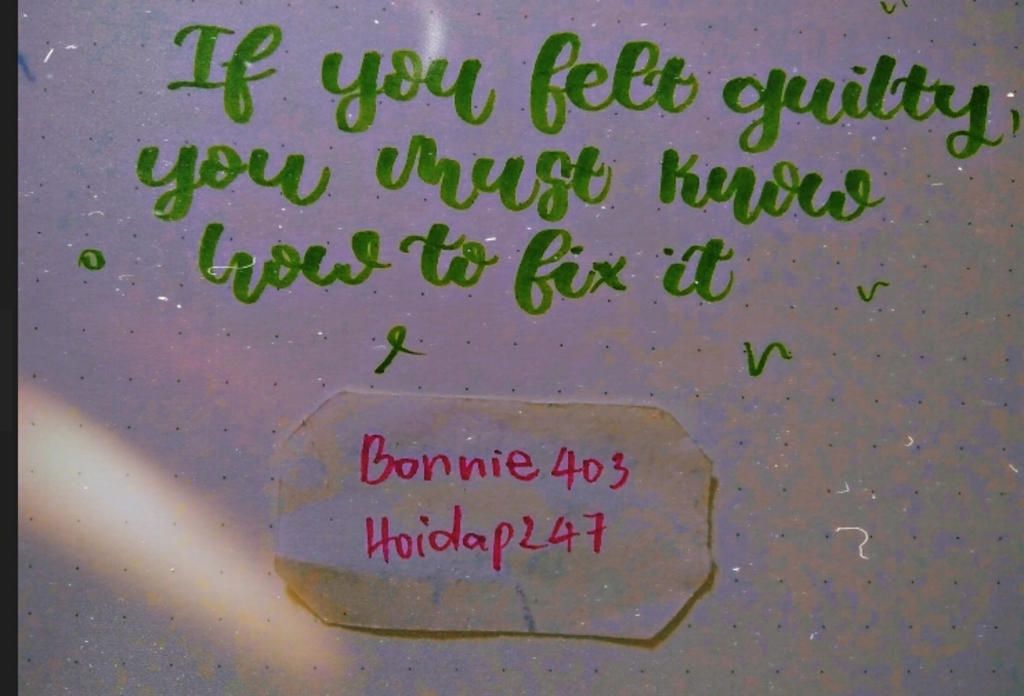 If you felt guilty,
you must know
how to fix it
Bonnie403
Hoidap247